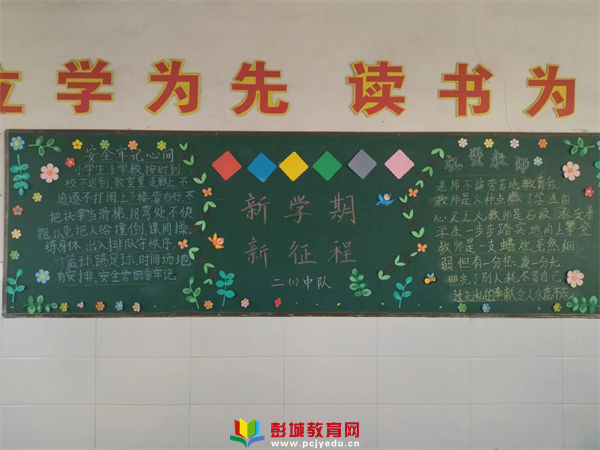 立学为先 读书为
安全牢记心间
小学生上学校,按时到
校不迟到,教室里走廊上不
追逐不打闹上下楼靠右行不
把扶手当滑梯,拐弯处不快
跑以免把人给撞倒课间操
练身体,出入排队守秩序
打篮球,踢足球,时间场地
有安排,安全常识要牢记
新学期
新征程
二(1)中队
礼赞教师
老师不辞劳苦地教育我
教师是人种点燃了学生的
心灵之人,教师是石级 承受着
学生一步步踏实地向上攀登
教师是一支蜡烛,虽然细
弱,但有一分热,发一分光,
照亮了别人,耗尽了自己。
这无私的奉献,令人永志不忘
彭城教育网
www.pcjyedu.cn